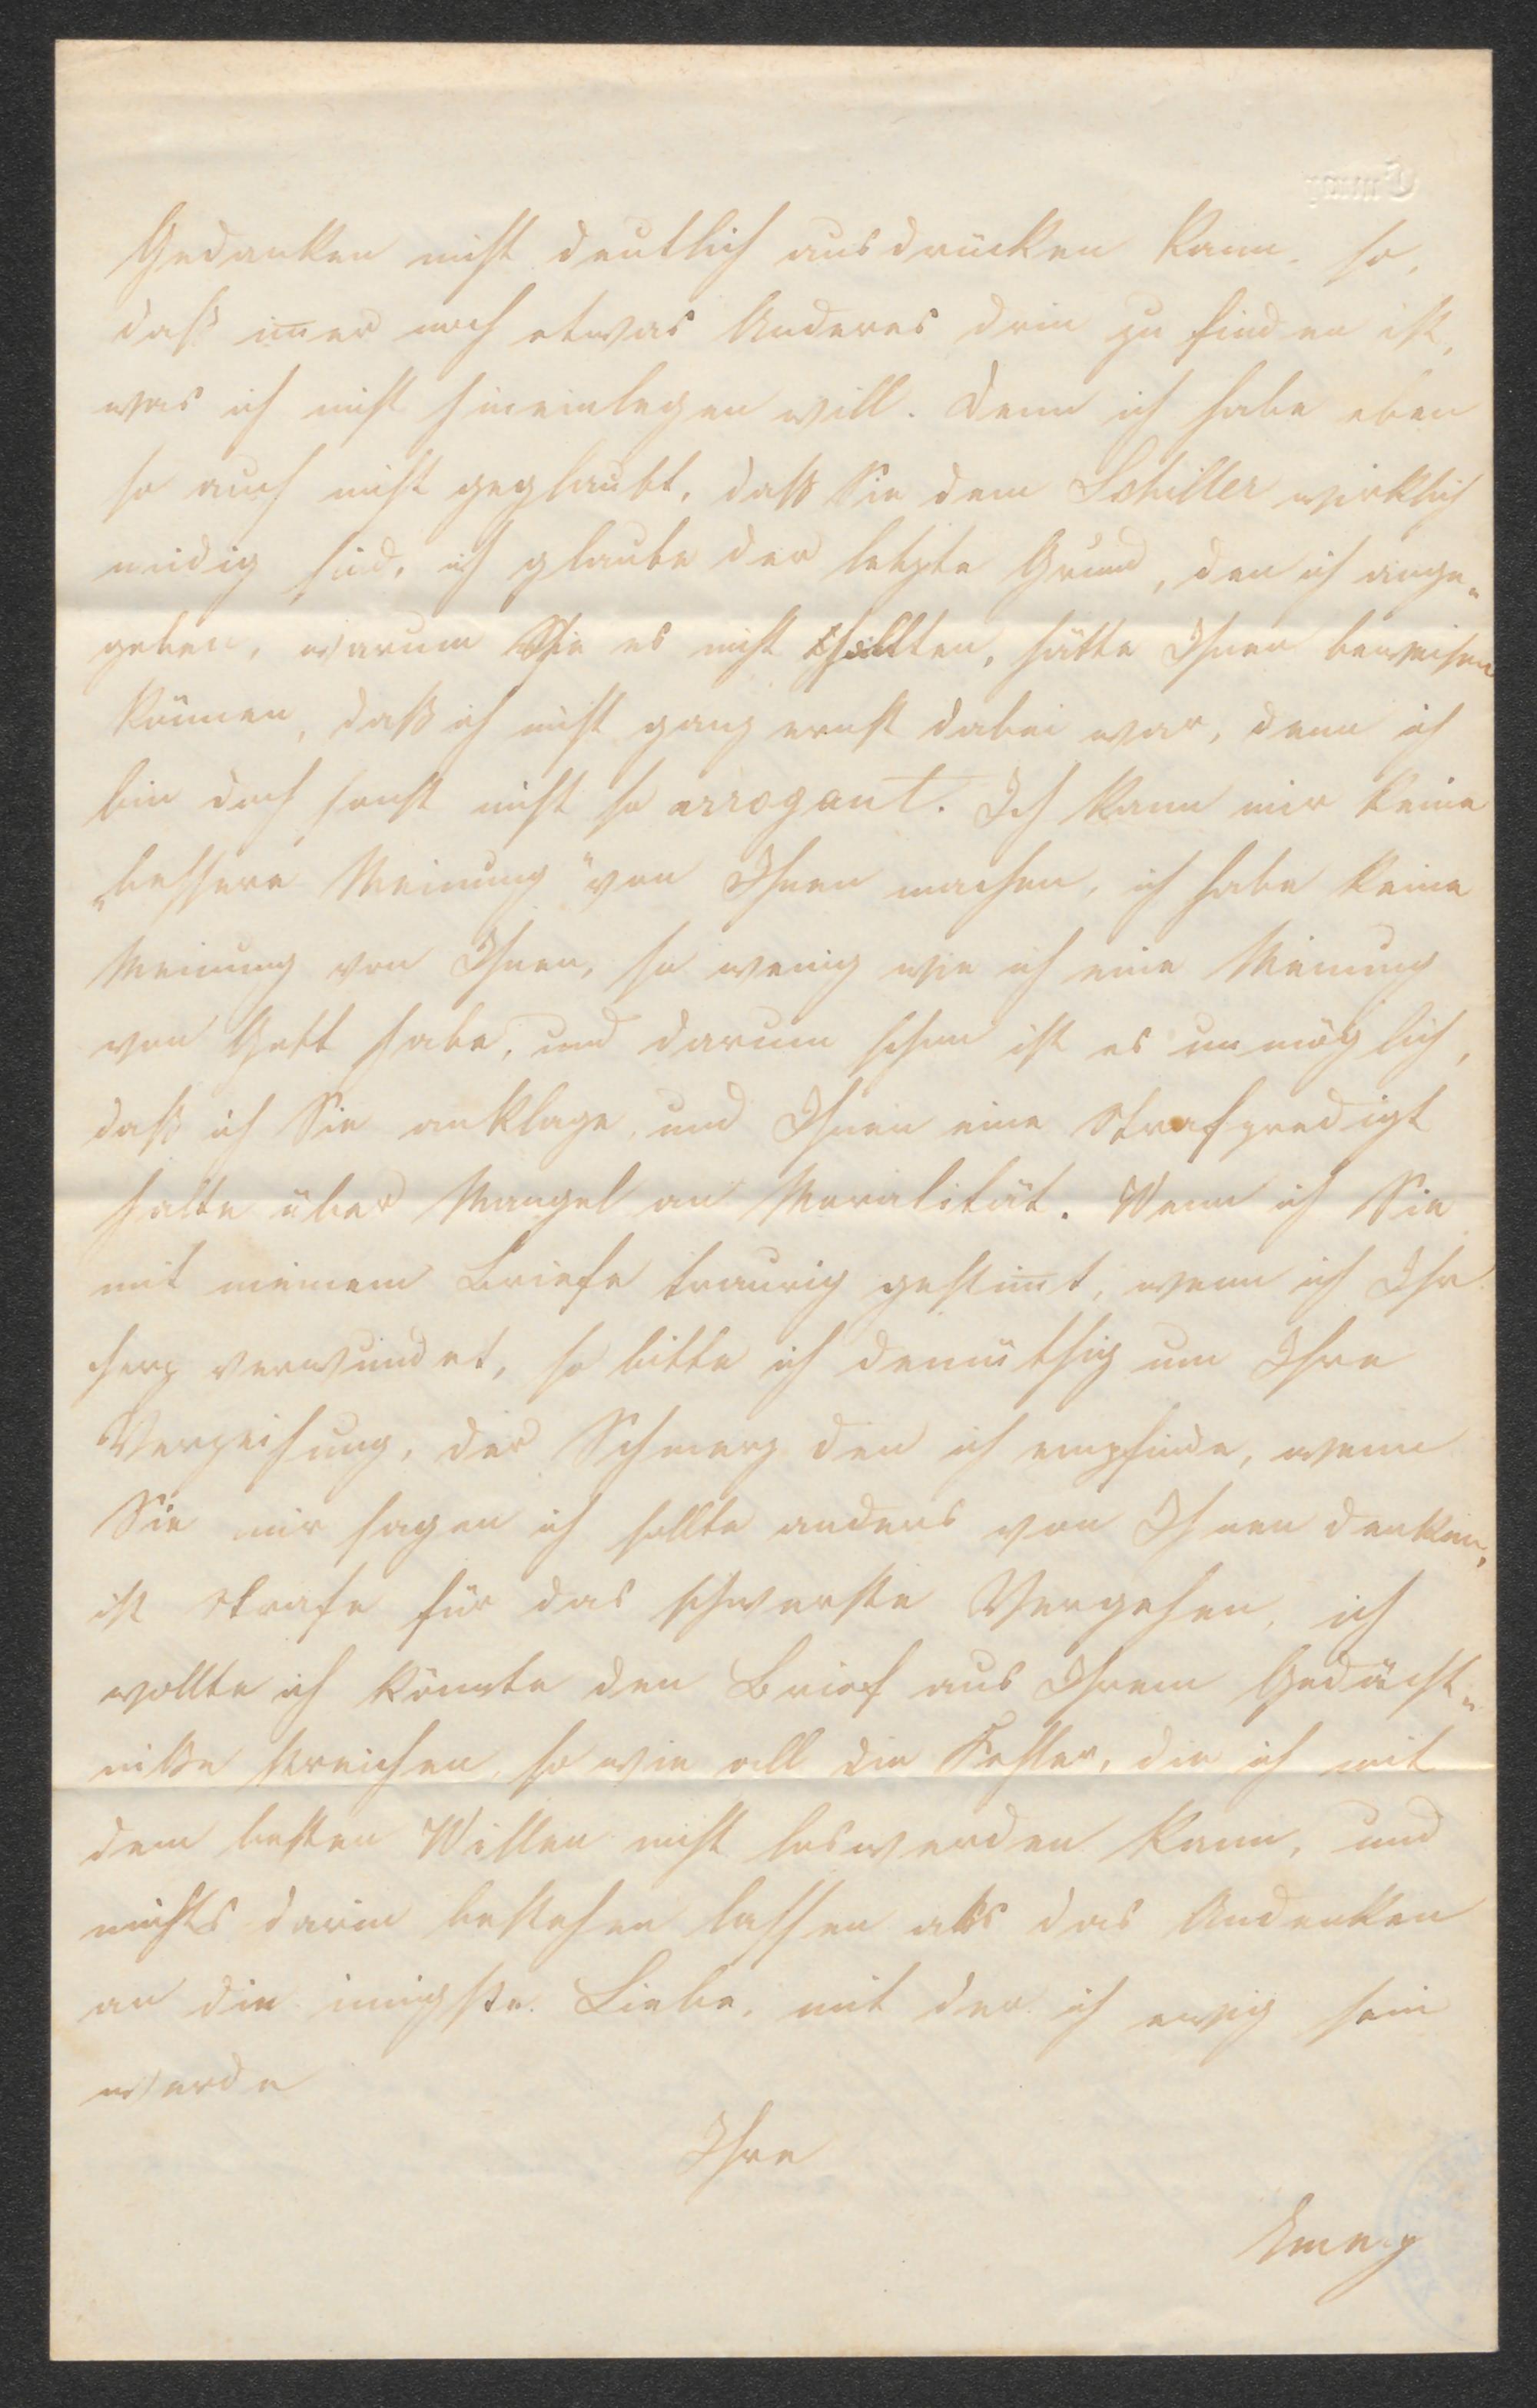 Gedanken nicht deutlich ausdrücken kann, so,
daß im̄er noch etwas Anderes drin zu finden ist,
was ich nicht hineinlegen will. Denn ich habe eben
so auch nicht geglaubt, daß Sie dem Schiller wirklich
neidig sind, ich glaube der letzte Grund, den ich ange-
geben, warum Sie es nicht sollten, hätte Ihnen beweisen
können, daß ich nicht ganz ernst dabei war, denn ich
bin doch sonst nicht so arrogant. Ich kann mir keine
„bessere Meinung“ von Ihnen machen, ich habe keine
Meinung von Ihnen, so wenig wie ich eine Meinung
von Gott habe, und darum schon ist es unmöglich,
daß ich Sie anklage, und Ihnen eine Strafpredigt
halte über Mangel an Moralität. Wenn ich Sie
mit meinem Briefe traurig gestim̄t, wenn ich Ihr
Herz verwundet, so bitte ich demüthig um Ihre
Verzeihung, der Schmerz den ich empfinde, wenn
Sie mir sagen ich sollte anders von Ihnen denken,
ist Strafe für das schwerste Vergehen, ich
wollte ich könnte den Brief aus Ihrem Gedächt-
niße streichen, so wie all die Fehler, die ich mit
dem besten Willen nicht loswerden kann, und
nichts darin bestehen lassen als das Andenken
an die innigste Liebe, mit der ich ewig sein
werde
Ihre
Emmy